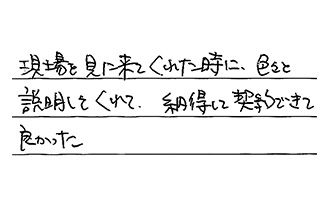 現場を見に来てくれた時に、色々と
説明してくれて、納得して契約できて
良かった